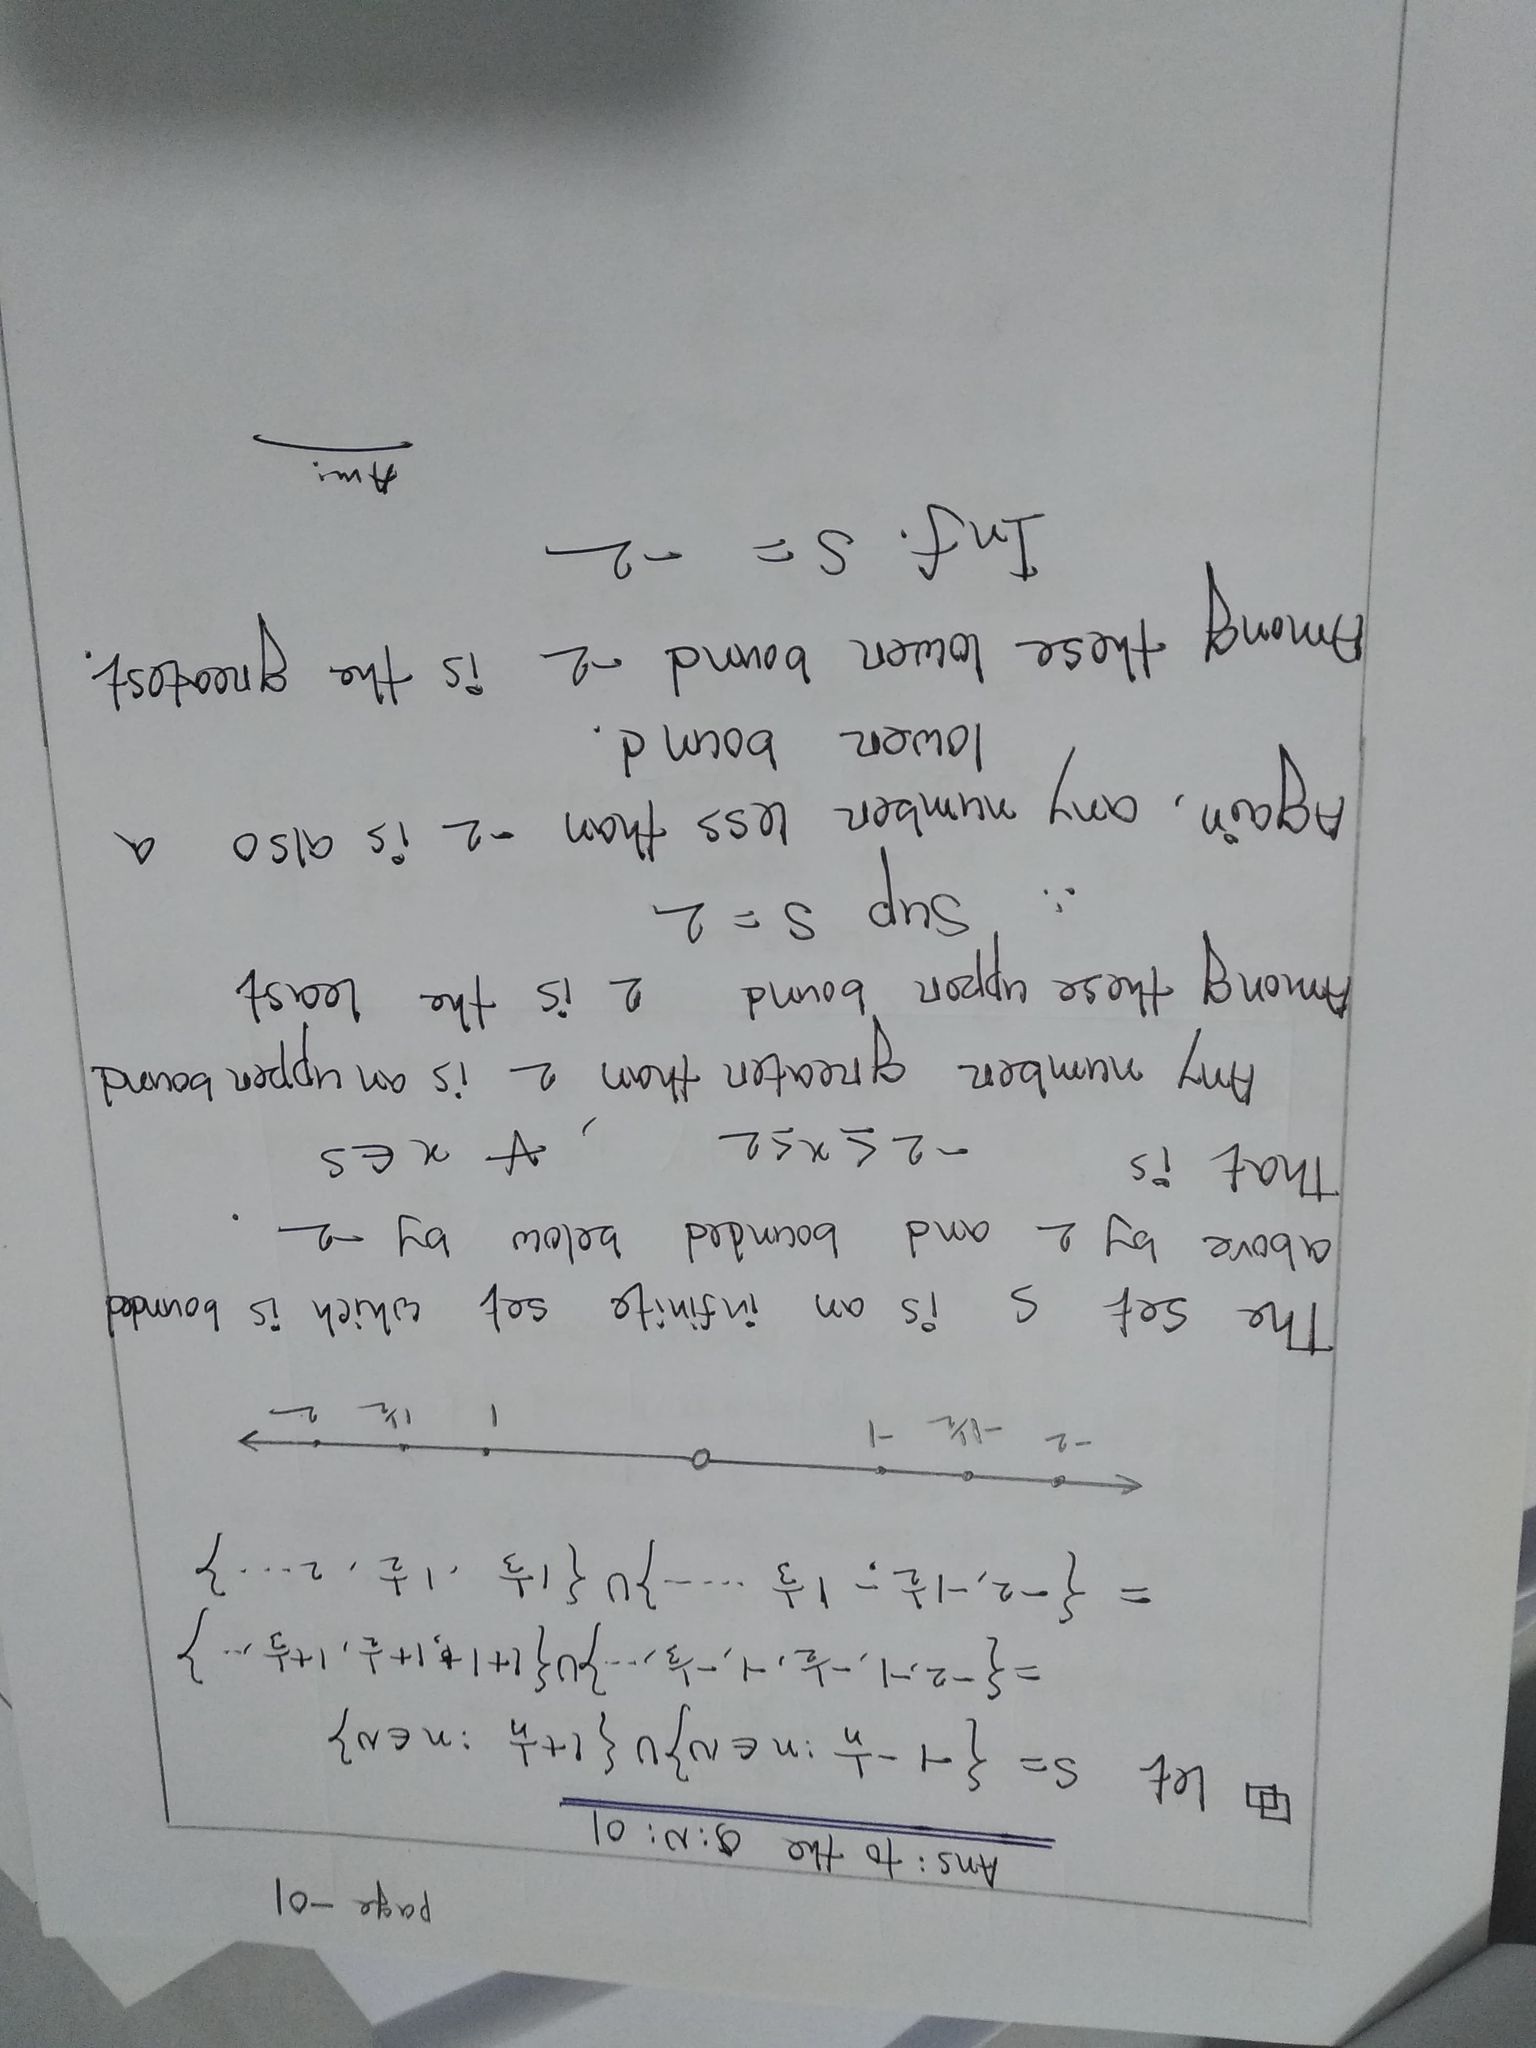 page -01
Ans: to the Q:N: 01
let S= {-1-1/n :n∈N}∪{1+1/n :n∈N}
={-2,-1,-1/2,-1,-1/3,...}∪{1+1,1+1/2,1+1/3,...}
= {-2,-1 1/2,-1 1/3 .....}∪{1 1/3,1 1/2,2....}
-2 -1 1/2 -1 1 1 1/2 2
The set S is an infinite set which is bounded
above by 2 and bounded below by -2.
That is -2≤x≤2, ∀ x∈S
Any number greater than 2 is an upper bound
Among these upper bound 2 is the least
∴ Sup S=2
Again, any number less than -2 is also a
lower bound.
Among these lower bound -2 is the greatest.
Inf. S= -2
Ans: